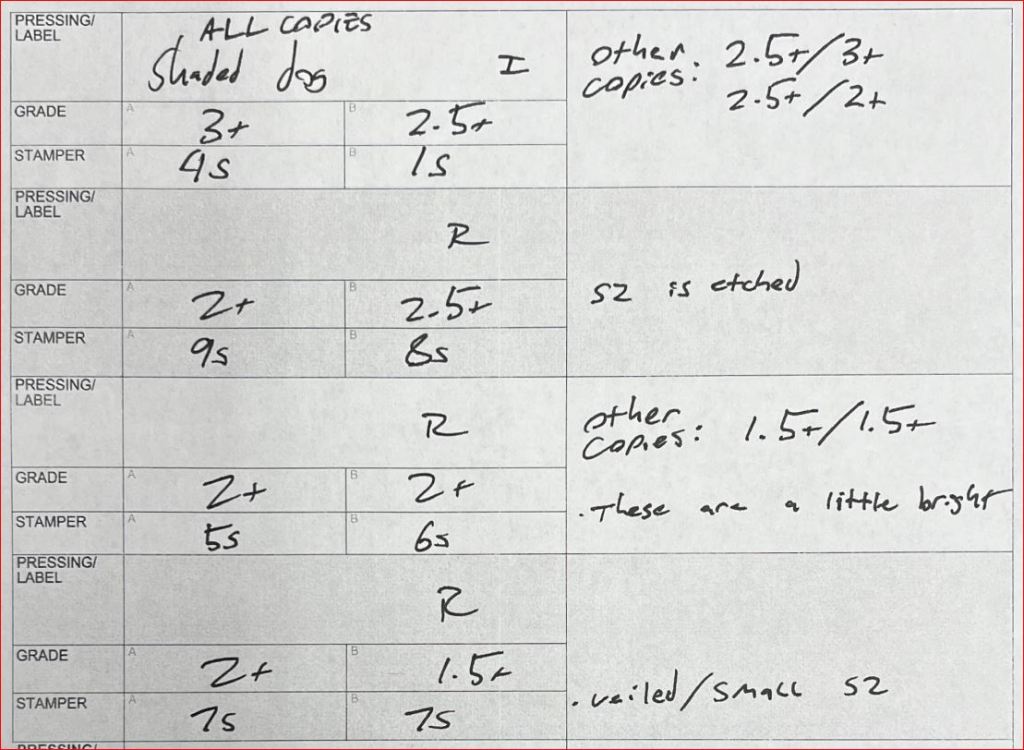 PRESSING/
LABEL
ALL COPIES
Shaded dog I
other copies: 2.5+/3+
2.5+/2+
GRADE A 3+ B 2.5+
STAMPER A 4s B 1s
PRESSING/
LABEL
R
GRADE A 2+ B 2.5+
S2 is etched
STAMPER A 9s B 8s
PRESSING/
LABEL
R
other copies: 1.5+/1.5+
GRADE A 2+ B 2+
. These are a little bright
STAMPER A 5s B 6s
PRESSING/
LABEL
R
GRADE A 2+ B 1.5+
. veiled/small S2
STAMPER A 7s B 7s
PRESSING/